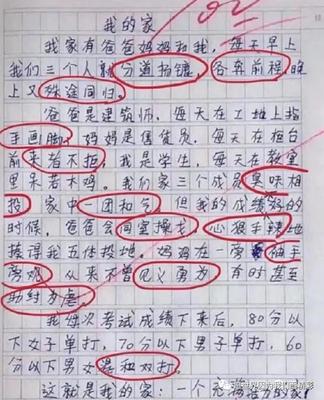 我的家
我家有爸爸妈妈和我,每天早上
我们三个人就分道扬镳,各奔前程,晚
上又殊途同归。
爸爸是建筑师,每天在工地上指
手画脚。妈妈是售货员,每天在柜台
前来者不拒。我是学生,每天在教室
里呆若木鸡。我们家三个成员臭味相
投,家中一团和气。但我的成绩不好的
时候,爸爸会同室操戈,心狠手辣地
揍得我五体投地。妈妈在一旁袖手
旁观,从来不曾见义勇为,有时甚至
助纣为虐。
我每次考试成绩下来后,80分以
下女子单打,70分以下男子单打,60
分以下男女混和双打。
这就是我的家:一个充满活力的家!